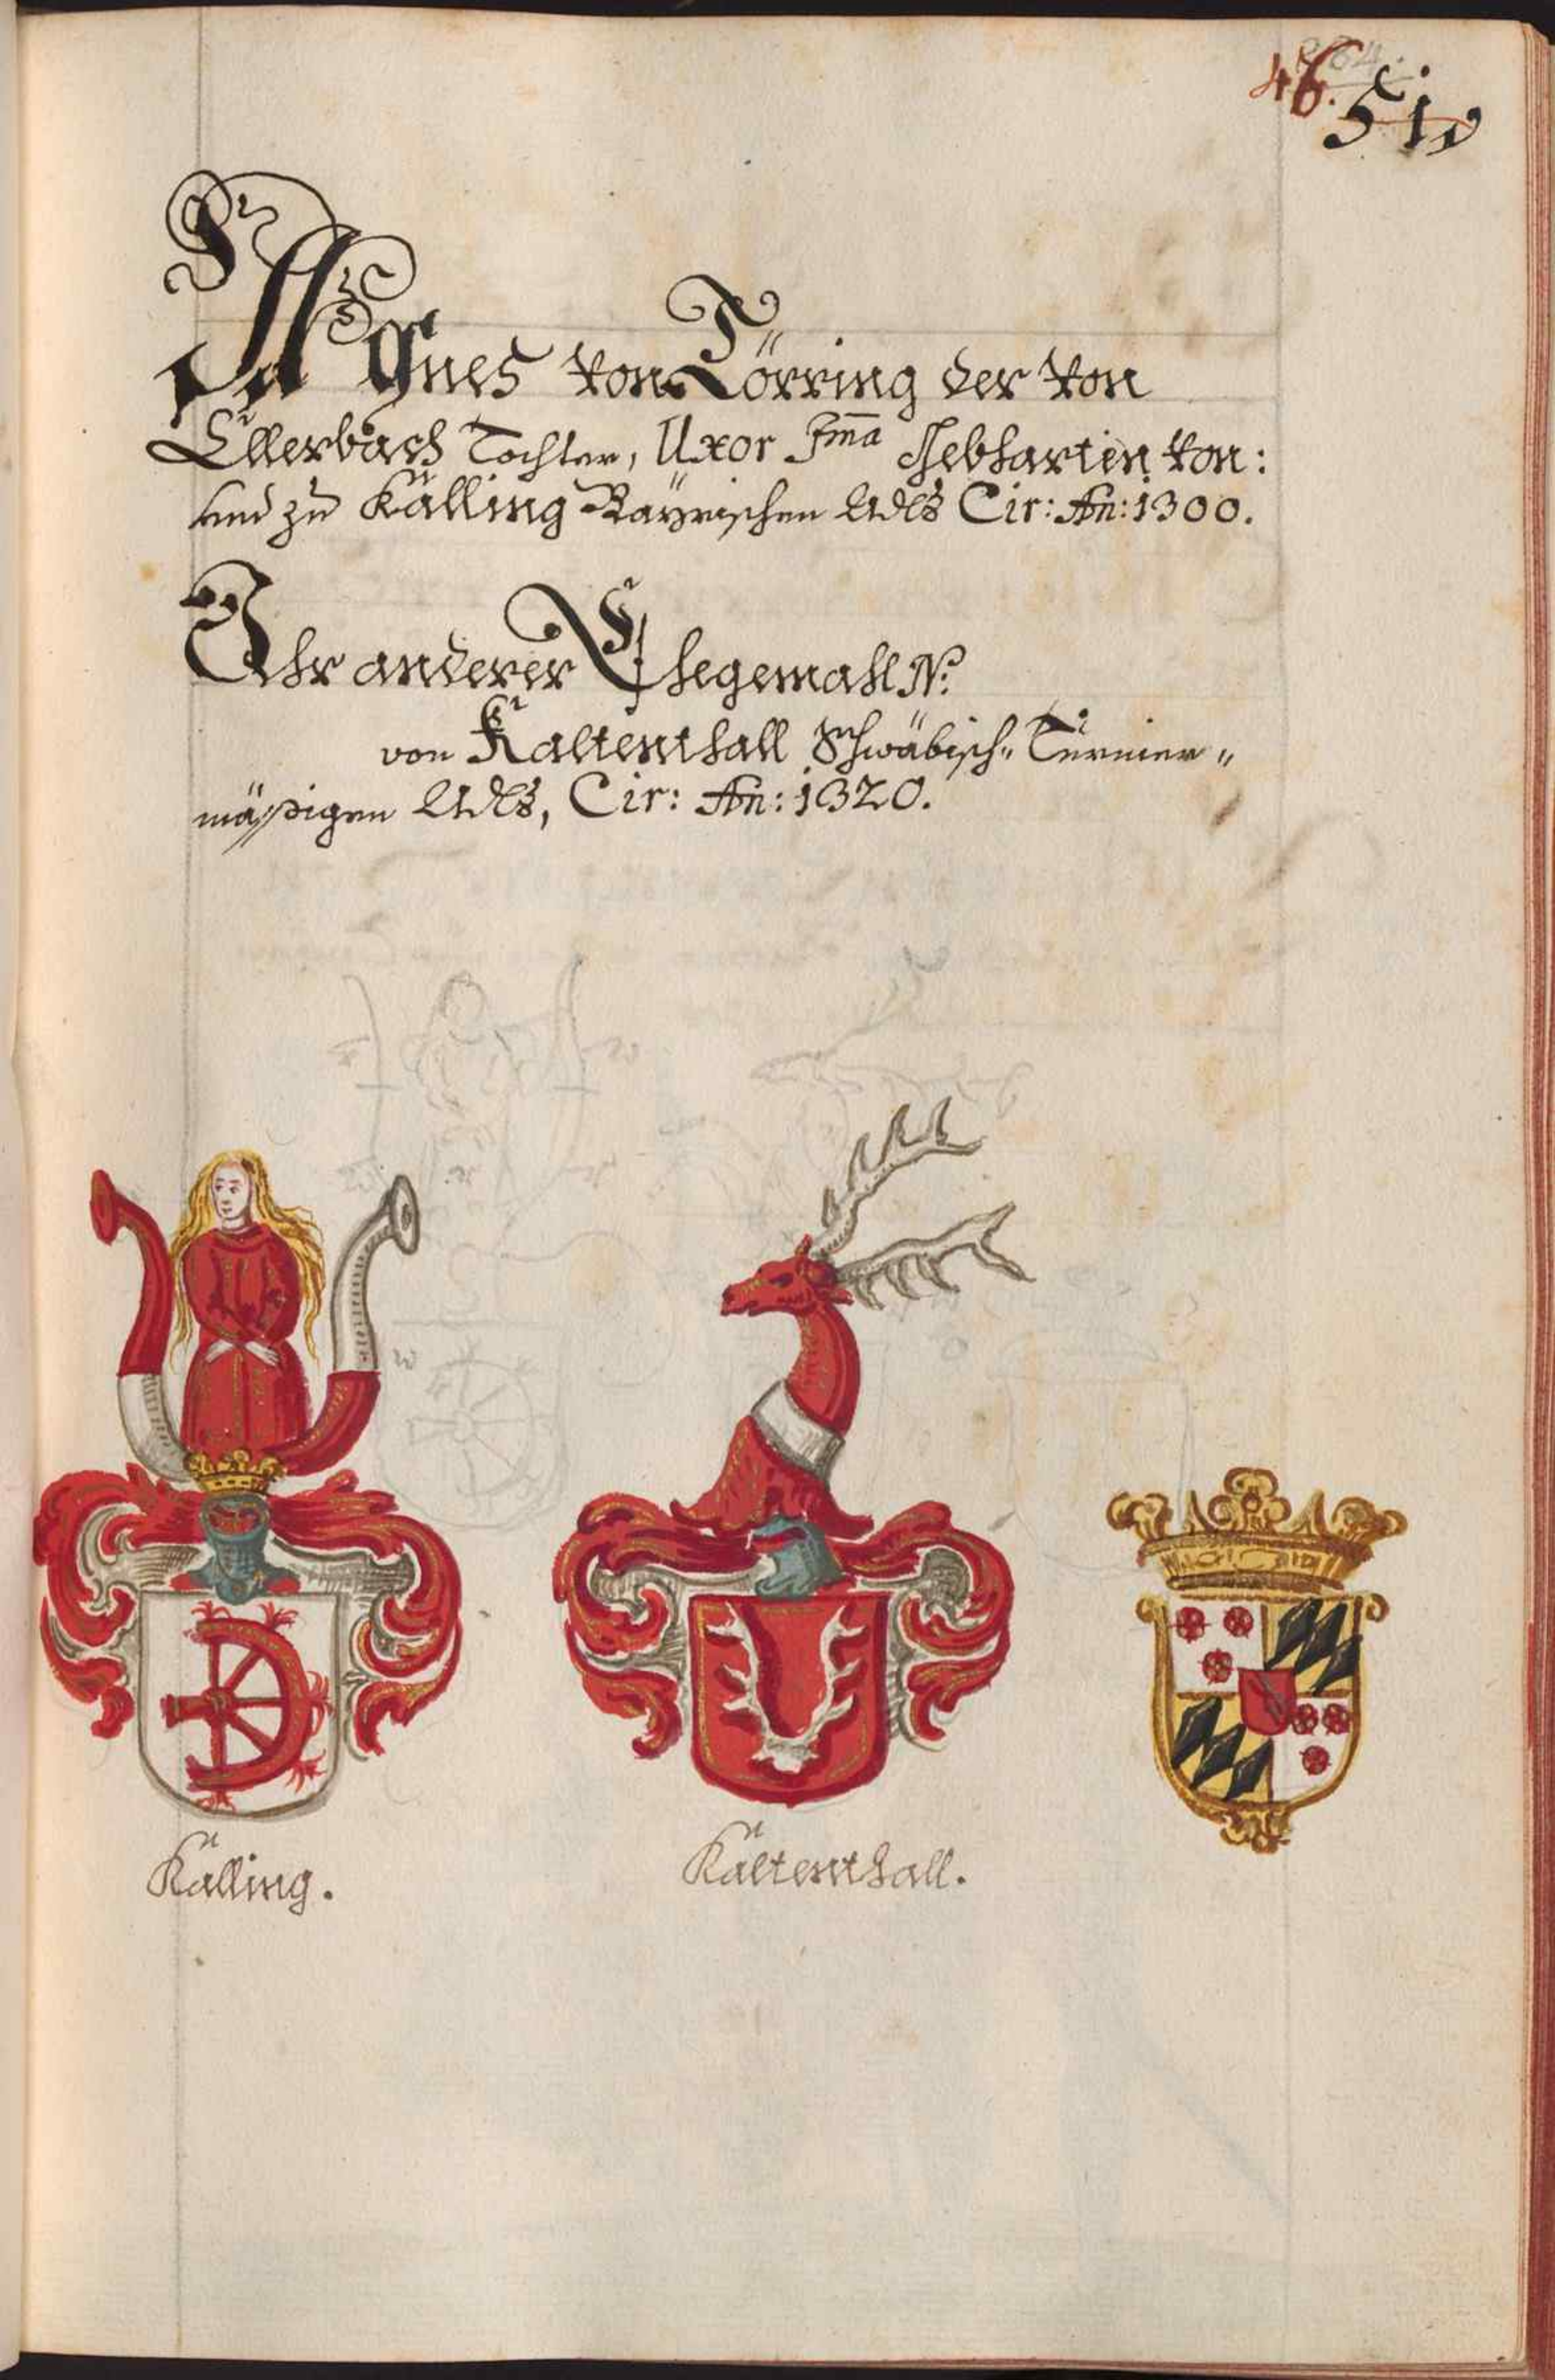 46.
Agnes von Törring der von
Ellerbach Tochter, Uxor Jma Gebharten von:
und zu Källing Bayrischen Adls Cir: An: 1300.
Ihr anderer Ehegemahl N:
von Kaltenthall Schwäbisch" Turnier"
mäßigen Adls, Cir: An: 1320.
Källing.
Kältenthall.